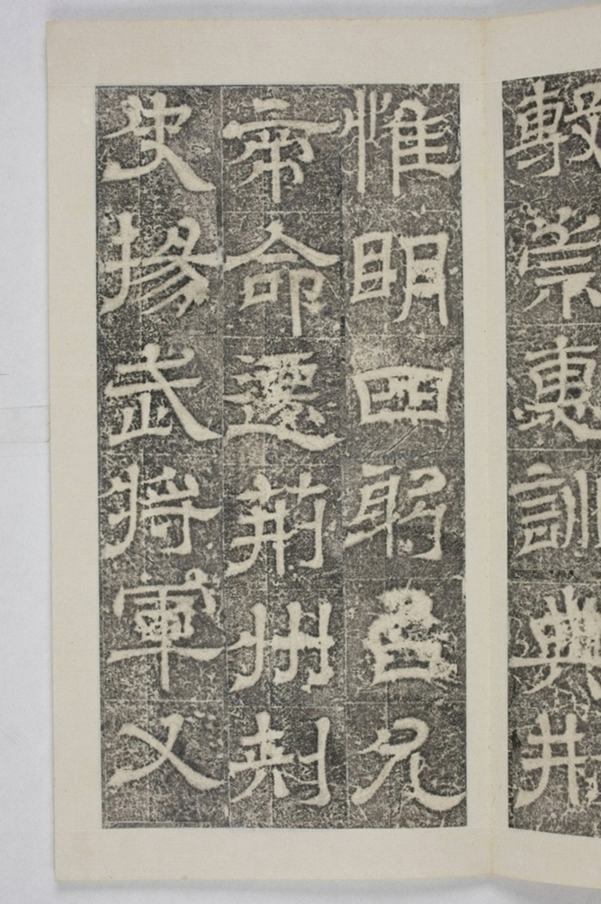 敷崇惠訓典刑
惟明四允
帝命遷荊州刺
史揚武將軍又